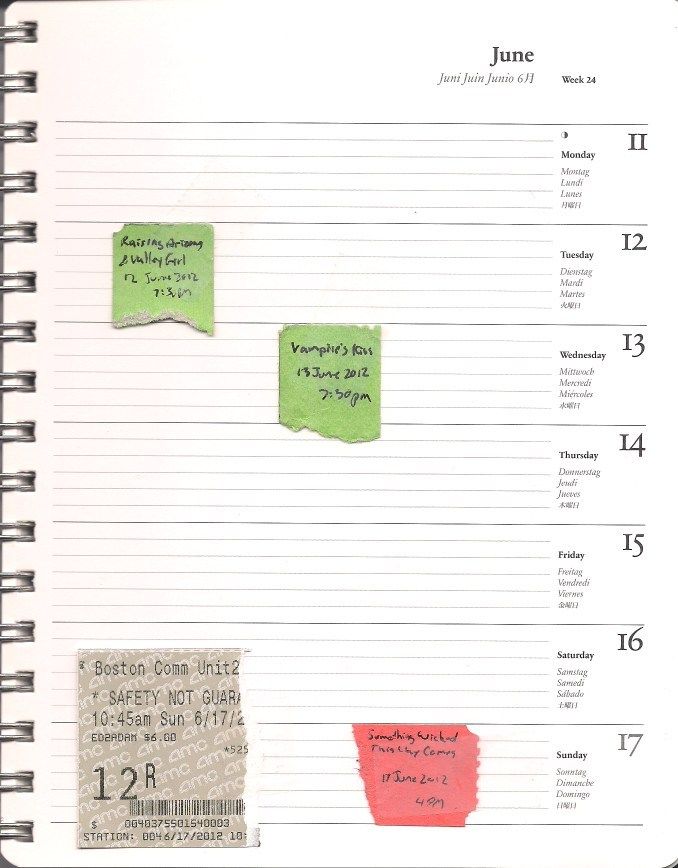 June
Juni Juin Junio 6月 Week 24
11
Monday
Montag
Lundi
Lunes
月曜日
12
Tuesday
Dienstag
Mardi
Martes
火曜日
Raising Arizona
& Valley Girl
12 June 2012
7:30pm
13
Wednesday
Mittwoch
Mercredi
Miércoles
水曜日
Vampire's Kiss
13 June 2012
7:30pm
14
Thursday
Donnerstag
Jeudi
Jueves
木曜日
15
Friday
Freitag
Vendredi
Viernes
金曜日
16
Saturday
Samstag
Samedi
Sábado
土曜日
Boston Comm Unit2
* SAFETY NOT GUARA
10:45am Sun 6/17/2
ED2ADAM $6.00
*525
12R
$ 0040375501540003
STATION: 0046/17/2012 10:
amc
17
Sunday
Sonntag
Dimanche
Domingo
日曜日
Something Wicked
This Way Comes
17 June 2012
4 PM